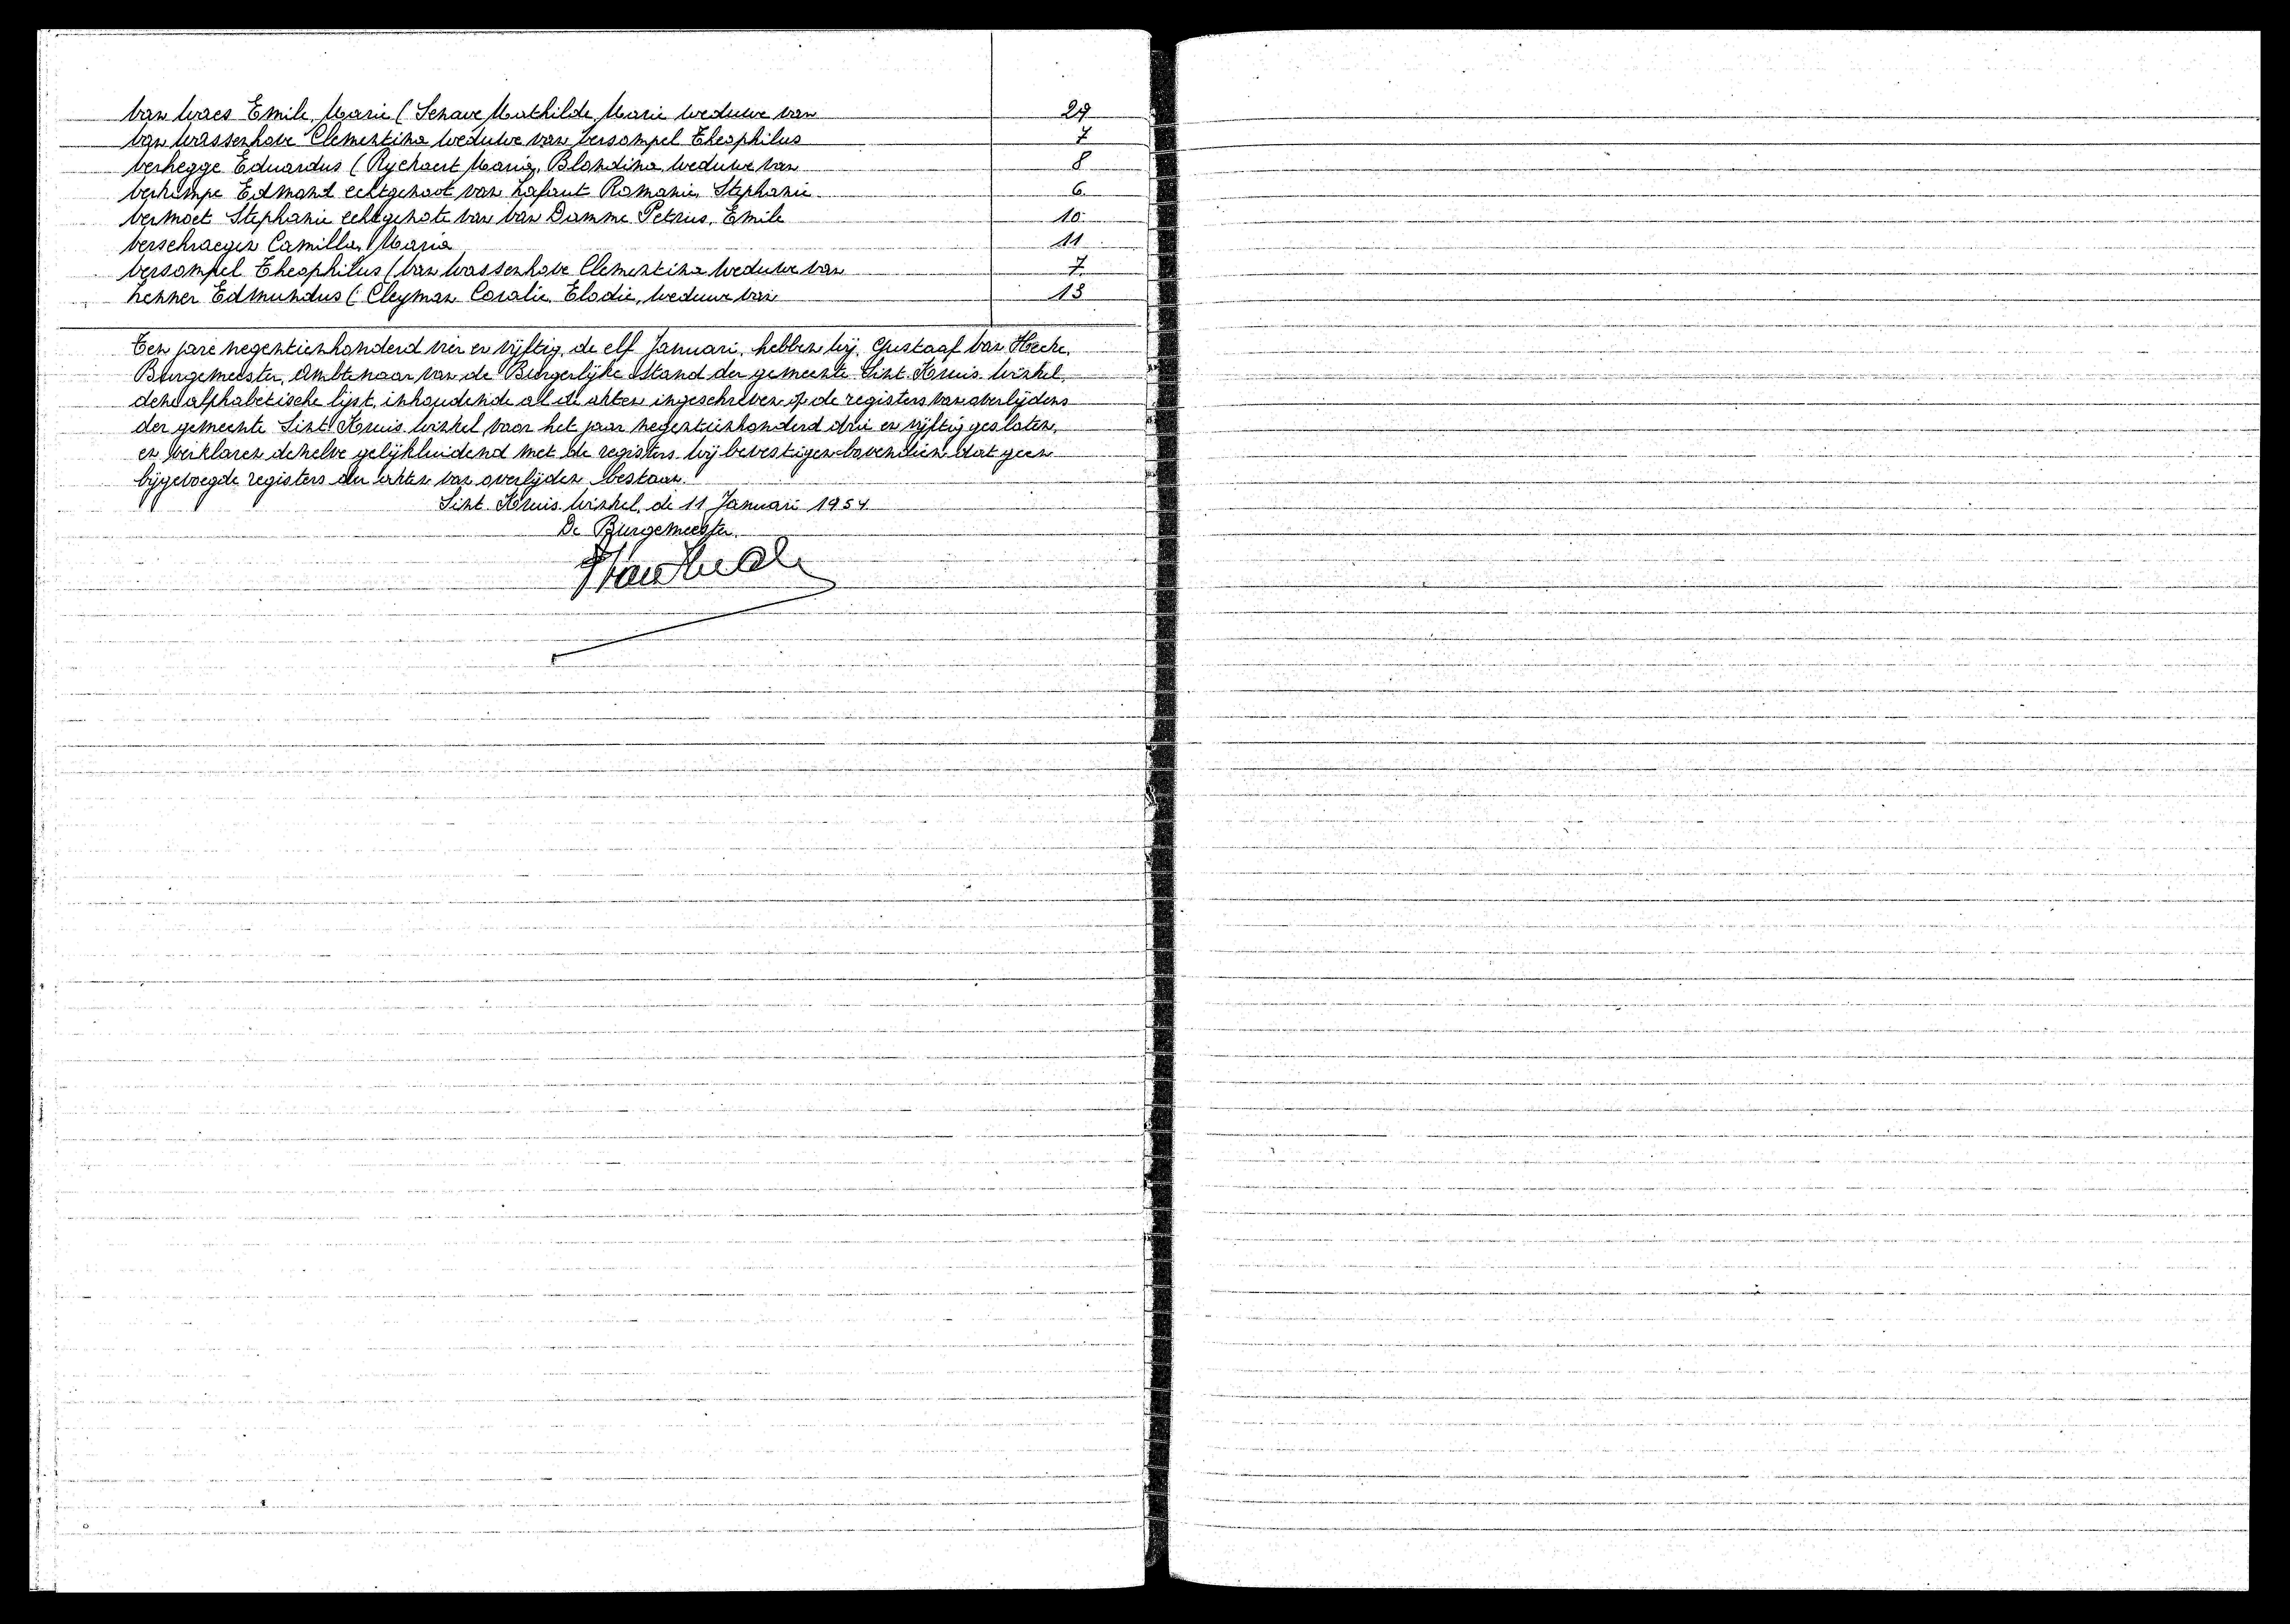 Van Waes Emile, Marie (Senave Mathilde, Marie weduwe van 29
Van Wassenhove Clementina weduwe van Versompel Theophilus 7
Verhegge Eduardus (Ryckaert Maria, Blondina, weduwe van 8
Verkimpe Edmond echtgenoot van Lafaut Romanie, Stephanie 6
Vermoet Stephanie echtgenote van Van Damme Petrus, Emile 10
Verschraegen Camilla, Maria 11
Versompel Theophilus (Van Wassenhove Clementina weduwe van 7
Zenner Edmundus (Cleyman Coralie, Elodie, weduwe van 13
Ten jare negentienhonderd vier en vijftig, de elf Januari, hebben wij, Gustaaf Van Hecke,
Burgemeester, Ambtenaar van de Burgerlijke Stand der gemeente Sint Kruis Winkel,
deze alphabetische lijst, inhoudende al de akten ingeschreven op de registers van overlijdens
der gemeente Sint Kruis Winkel voor het jaar negentienhonderd drie en vijftig gesloten,
en verklaren dezelve gelijkluidend met de registers. Wij bevestigen bovendien dat geen
bijgevoegde registers der akten van overlijden bestaan.
Sint Kruis Winkel, de 11 Januari 1954
De Burgemeester,